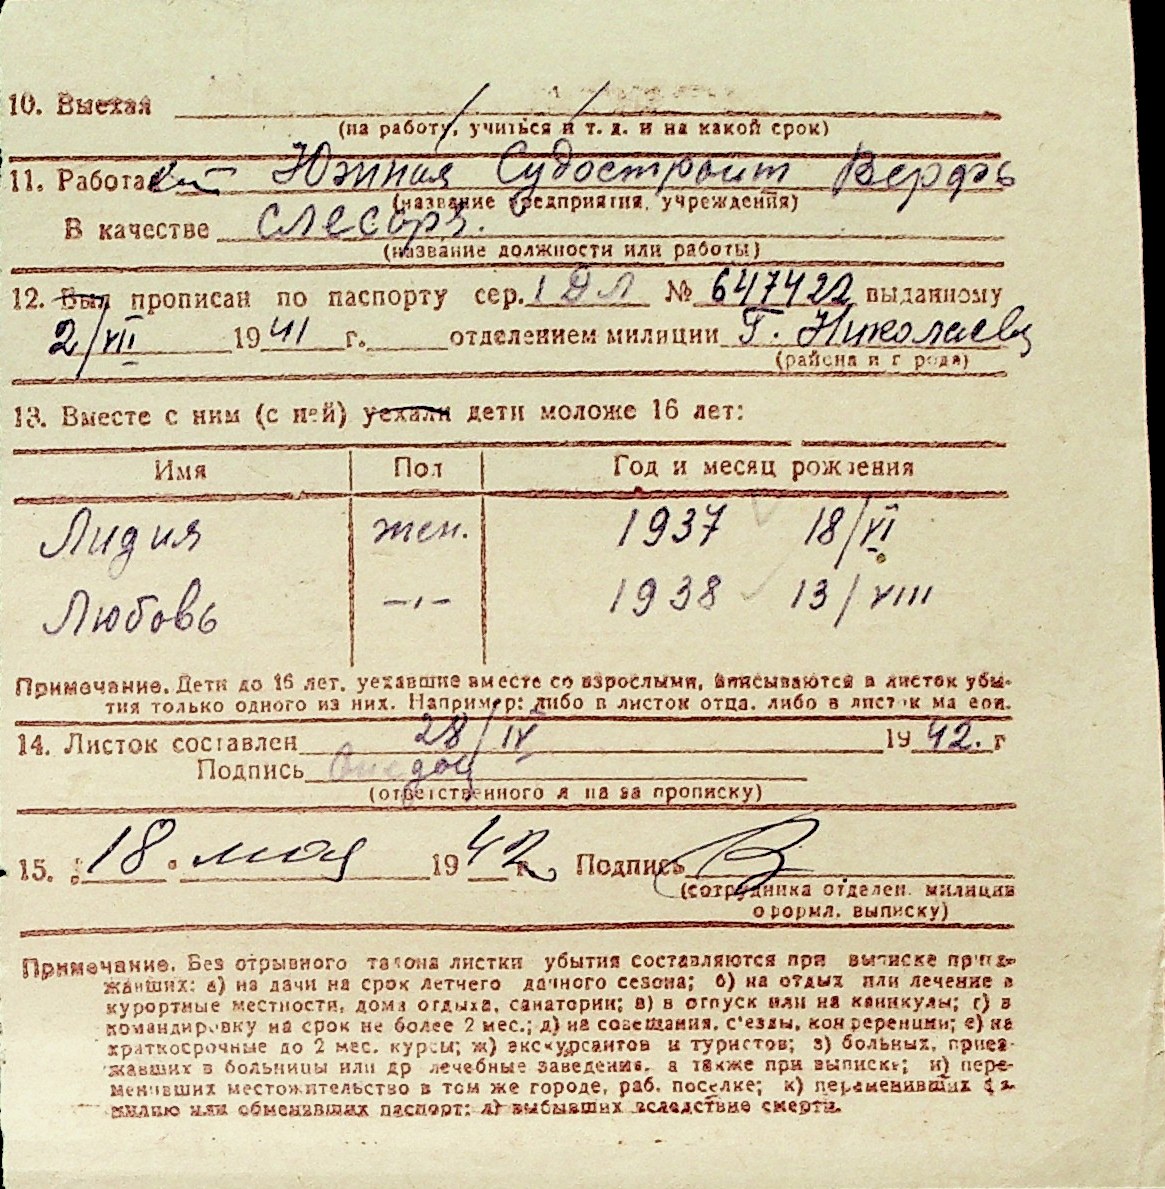 10. Выехал
(на работу, учиться и т. д. и на какой срок)
11. Работает Южная Судостроит Верфь
(название предприятия, учреждения)
В качестве слесаря.
(название должности или работы)
12. Был прописан по паспорту сер. I ДЛ № 647422 выданному
2/VII 1941 г. отделением милиции Г. Николаев
(района и города)
13. Вместе с ним (с ней) уехали дети моложе 16 лет:
Имя Пол Год и месяц рождения
Лидия жен. 1937 18/VI
Любовь -"- 1938 13/VIII
Примечание. Дети до 16 лет, уехавшие вместе со взрослыми, вписываются в листок убы-
тия только одного из них. Например: либо в листок отца, либо в листок матери.
14. Листок составлен 28/IV 1942. г
Подпись
(ответственного лица за прописку)
15. 18 мая 1942 г. Подпись
(сотрудника отделен. милиции
оформл. выписку)
Примечание. Без отрывного талона листки убытия составляются при выписке приез-
жавших: а) на дачи на срок летнего дачного сезона; б) на отдых или лечение в
курортные местности, дома отдыха, санатории; в) в отпуск или на каникулы; г) в
командировку на срок не более 2 мес.; д) на совещания, с'езды, конференции; е) на
краткосрочные до 2 мес. курсы; ж) экскурсантов и туристов; з) больных, приез-
жавших в больницы или др лечебные заведение, а также при выписке; и) пере-
менивших местожительство в том же городе, раб. поселке; к) переменивших фа-
милию или обменивших паспорт; л) выбывших вследствие смерти.